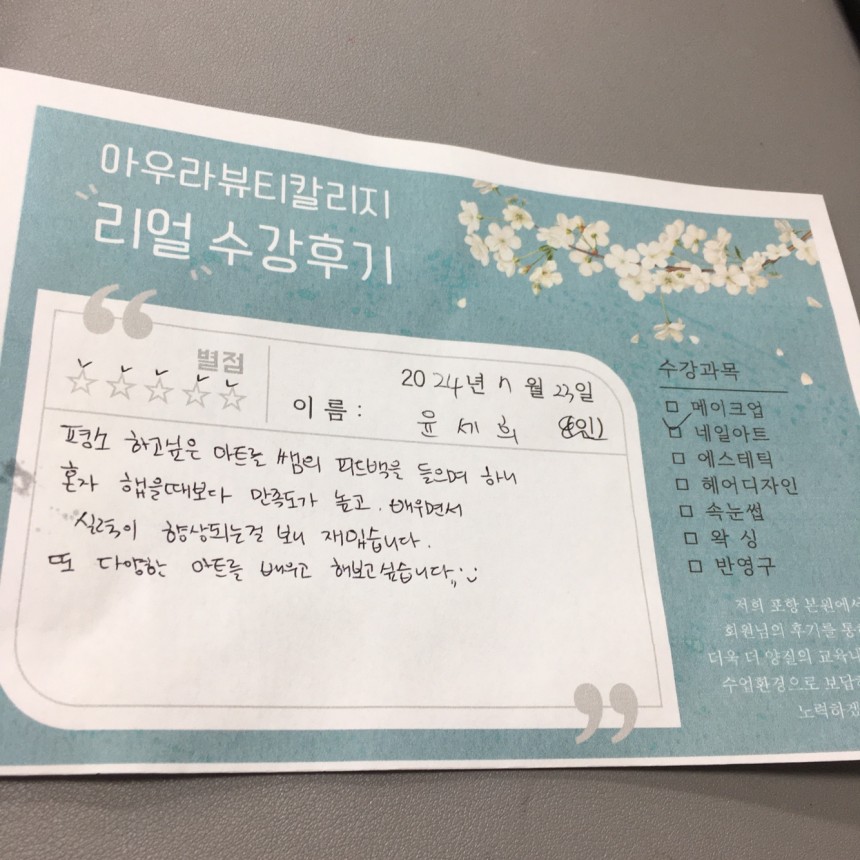 아우라뷰티칼리지
리얼 수강후기
별점
2024년 n월 23일
이름 : 윤세희 (인)
평소 하고싶은 아트를 쌤의 피드백을 들으며 하니
혼자 했을때보다 만족도가 높고. 배우면서
실력이 향상되는걸 보니 재밌습니다.
또 다양한 아트를 배우고 해보고싶습니다
수강과목
메이크업
네일아트
에스테틱
헤어디자인
속눈썹
왁싱
반영구
저희 포항 본원에서
회원님의 후기를 통
더욱 더 양질의 교육
수업환경으로 보답
노력하겠